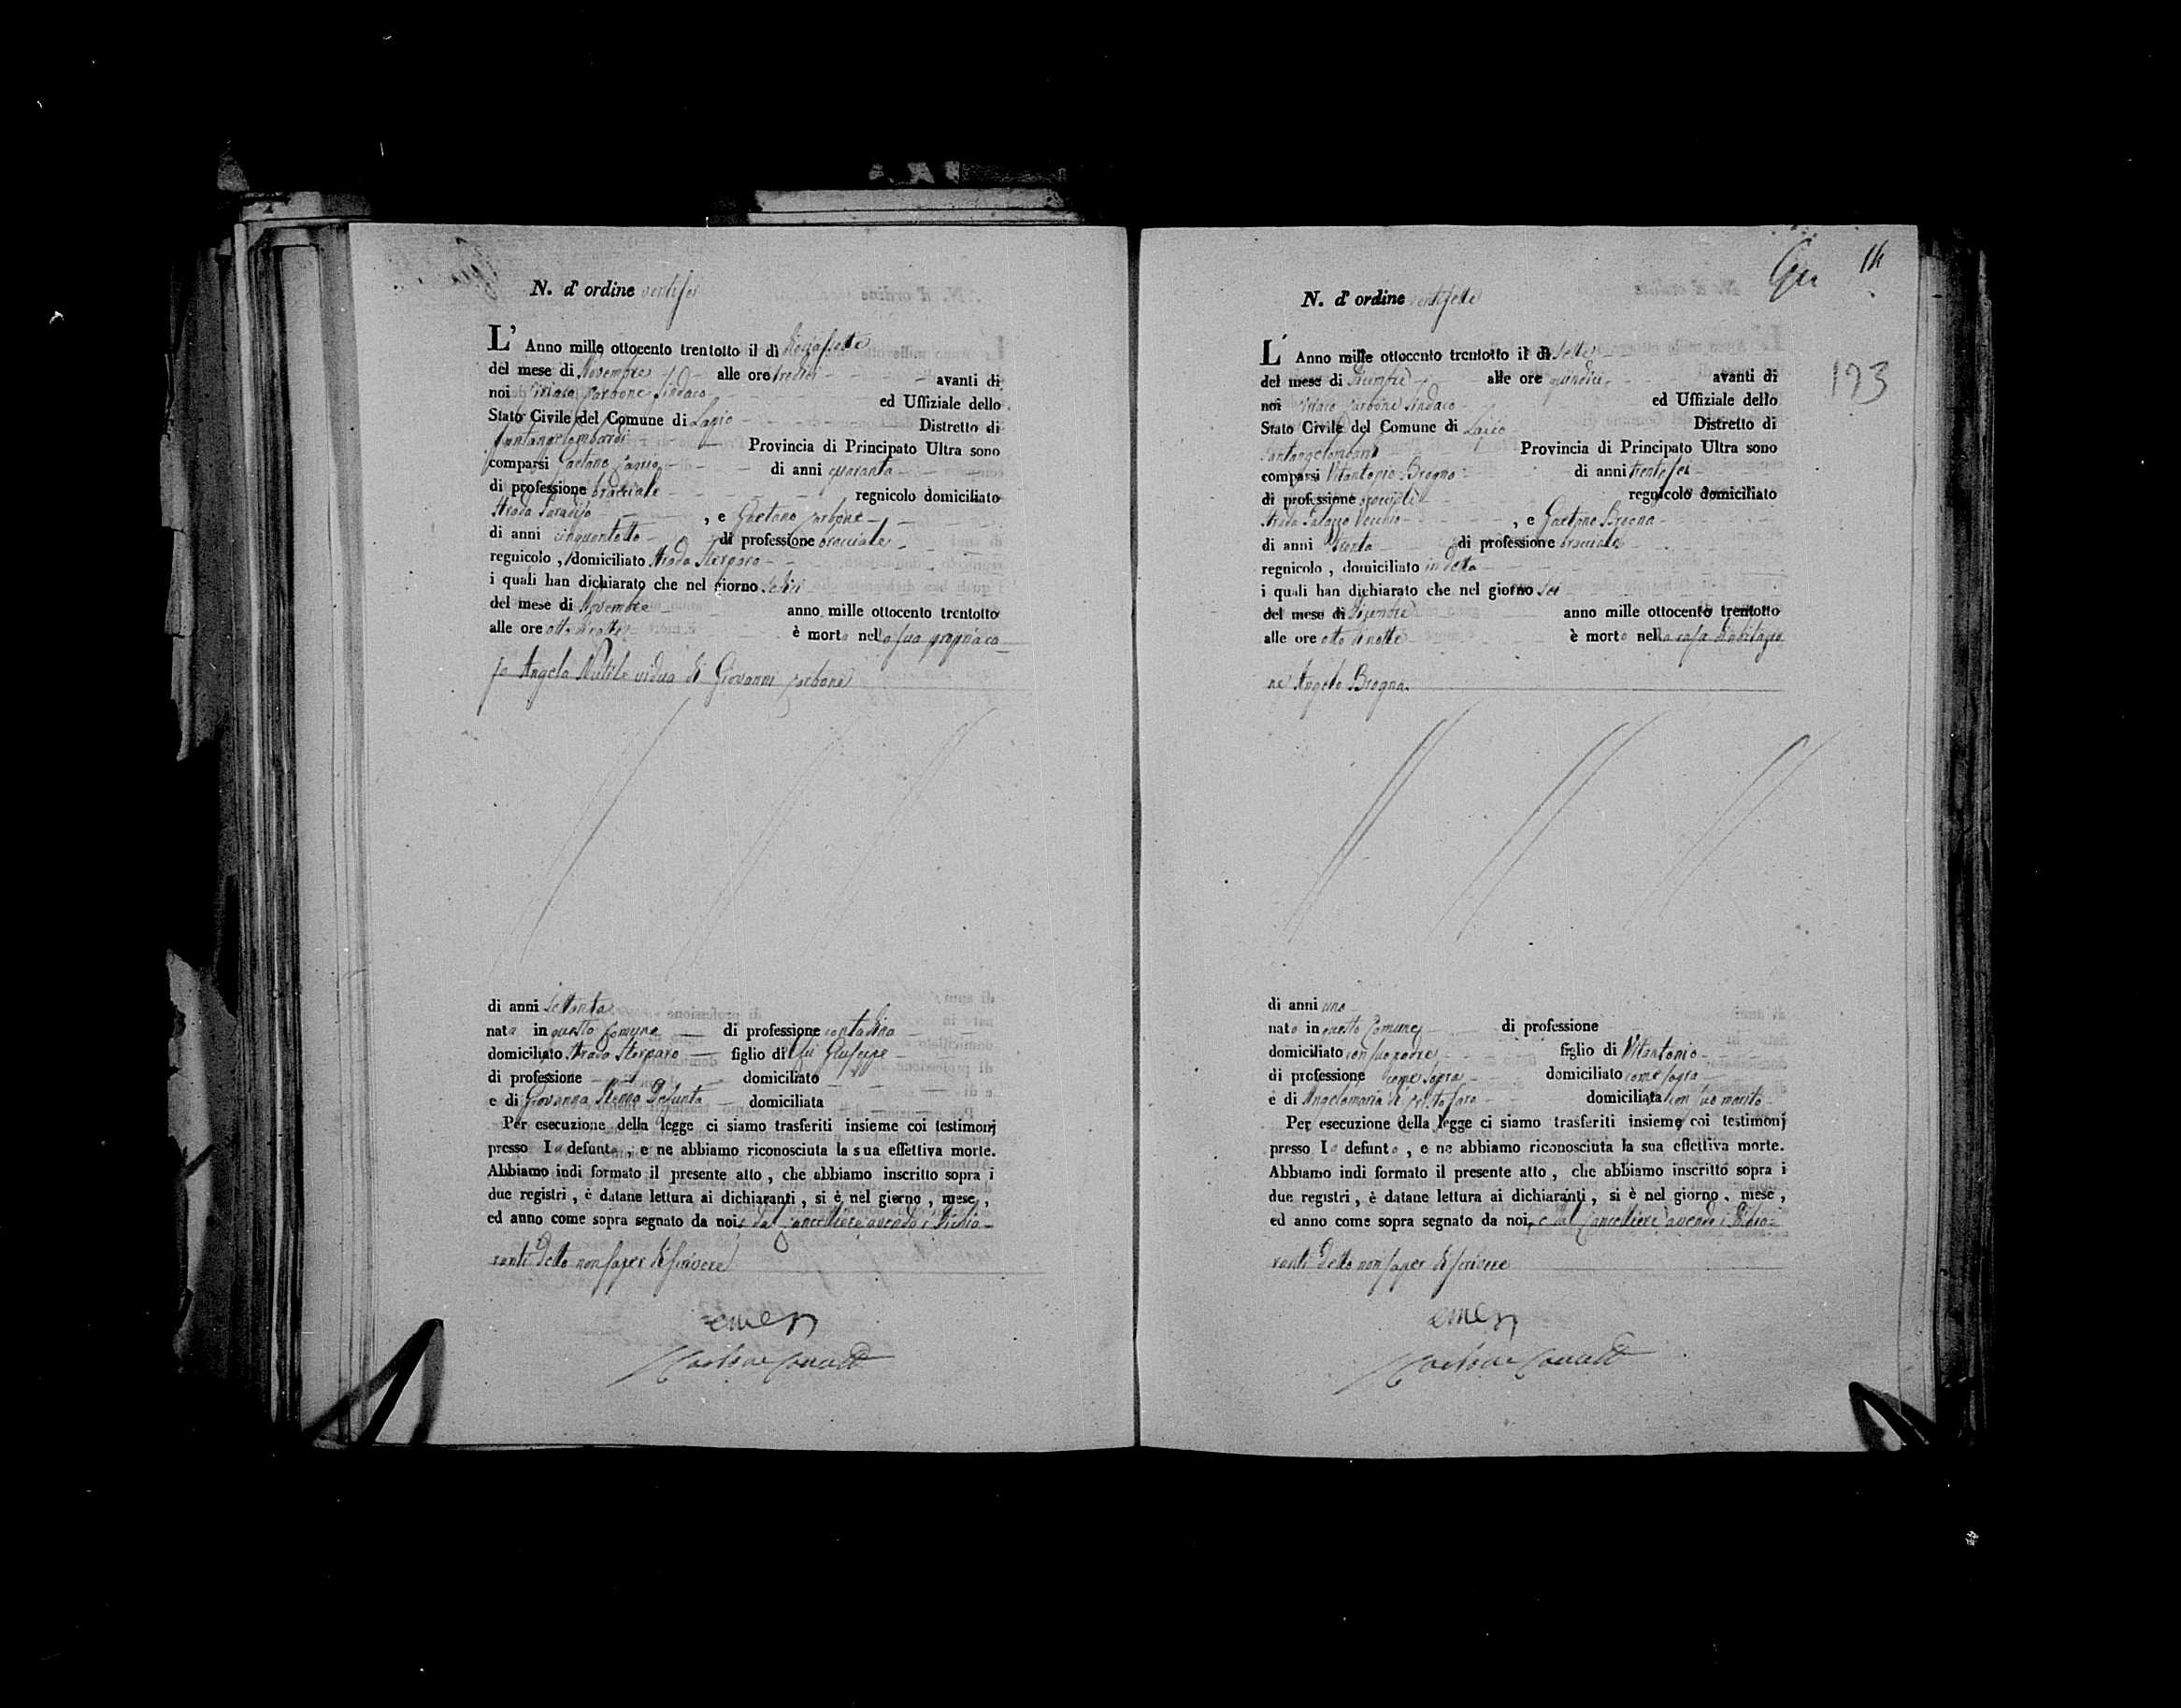 N. d'ordine ventisei
L' Anno mille ottocento trentotto il di diciassette
del mese di Novembre alle ore tredici avanti di
noi Ciriaco Carbone Sindaco ed Uffiziale dello
Stato Civile del Comune di Lapio Distretto di
Santangelombardi Provincia di Principato Ultra sono
comparsi Gaetano di anni quaranta
di professione bracciale regnicolo domiciliato
Strada Paradiso , e Gaetano Carbone
di anni cinquantotto di professione bracciale
regnicolo , domiciliato Strada Sterparo
i quali han dichiarato che nel giorno sedici
del mese di Novembre anno mille ottocento trentotto
alle ore otto di notte è morta nella sua propria ca-
sa Angela Nutile vidua di Giovanni Carbone
di anni settanta
nata in questo Comune di professione contadina
domiciliato Strada Sterparo figlio di fu Giuseppe
di professione domiciliato
e di Giovanna defunta domiciliata
Per esecuzione della legge ci siamo trasferiti insieme coi testimonj
presso la defunta , e ne abbiamo riconosciuta la sua effettiva morte.
Abbiamo indi formato il presente atto , che abbiamo inscritto sopra i
due registri , è datane lettura ai dichiaranti , si è nel giorno , mese ,
ed anno come sopra segnato da noi, e dal Cancelliere avendo i dichia-
ranti detto non saper di scrivere
N. d'ordine ventisette
14
L' Anno mille ottocento trentotto il di sette
193
del mese di Dicembre alle ore quindici avanti di
noi Ciriaco Carbone Sindaco ed Uffiziale dello
Stato Civile del Comune di Lapio Distretto di
Santangelombardi Provincia di Principato Ultra sono
comparsi Vitantonio Brogna di anni trentasei
di professione regnicolo domiciliato
Strada Palazzo Vecchio , e Gaetano Brogna
di anni trenta di professione bracciale
regnicolo , domiciliato in detta
i quali han dichiarato che nel giorno sei
del mese di Dicembre anno mille ottocento trentotto
alle ore otto di notte è morto nella casa d'abitazio
ne Angelo Brogna
di anni uno
nato in questo Comune di professione
domiciliato con suo padre figlio di Vitantonio
di professione come sopra domiciliato come sopra
e di Angelamaria di Cristofaro domiciliata con suo marito
Per esecuzione della legge ci siamo trasferiti insieme coi testimonj
presso lo defunto , e ne abbiamo riconosciuta la sua effettiva morte.
Abbiamo indi formato il presente atto , che abbiamo inscritto sopra i
due registri , è datane lettura ai dichiaranti , si è nel giorno , mese ,
ed anno come sopra segnato da noi, e dal Cancelliere avendo i dichia-
ranti detto non saper di scrivere